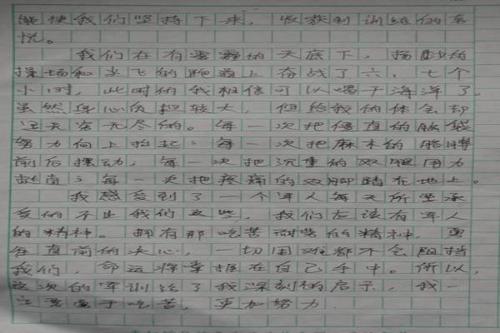 能使我们坚持下来，收获到训练的喜
悦。
我们在有雾霾的天底下，扬的
操场和的跑道上奋战了六、七个
小时，此时的我相信可以喝干海洋了。
虽然身心负担较大，但给我的体会却
无尽的。每一次把僵直的
努力向上抬起；每一次把麻木的胳膊
前后摆动，每一次把沉重的双腿用力
；每一次把疼痛的双脚踏在地上。
我感受到了一个军人每天所承
受的不止我们这些，我们应该有军人
的精神。拥有那吃苦耐劳的精神，勇
往直前的决心，一切困难都不会阻挡
我们，命运将掌握在自己手中。所以，
这次的军训给了我深刻的启示，我一
定要勇于吃苦，更加努力